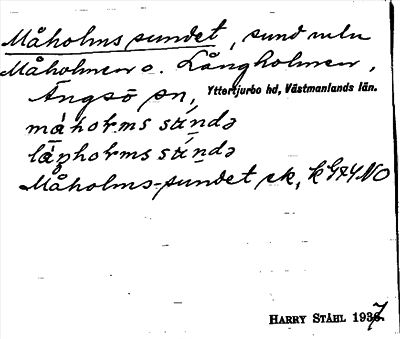 Måholms sundet, sund mln
Måholmen o. Långholmen,
Ängsö sn, Yttertjurbo hd, Västmanlands län.
måhoɫms súndə
låŋhoɫms súndə
Måholms-sundet ek, k 974 NO
HARRY STÅHL 1937